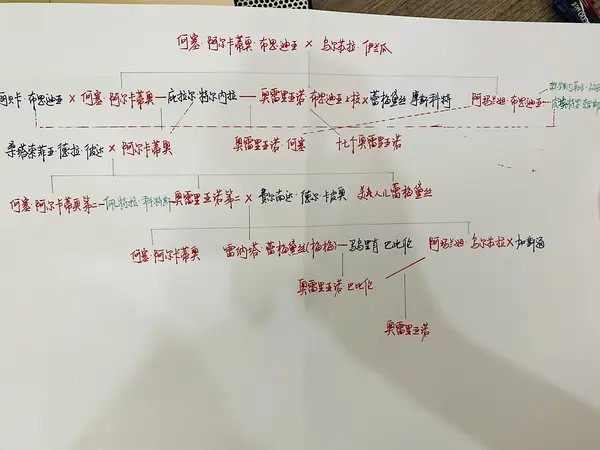 何塞·阿尔卡蒂奥·布恩迪亚 × 乌尔苏拉·伊兰瓜
贝卡·布恩迪亚 × 何塞·阿尔卡蒂奥—庇拉尔·特尔内拉—奥雷里亚诺·布恩迪亚上校×蕾梅黛丝·摩斯科特 阿玛兰妲·布恩迪亚
桑塔索菲亚·德拉·彼达 × 阿尔卡蒂奥 奥雷里亚诺·何塞 十七个奥雷里亚诺
何塞·阿尔卡蒂奥第二—佩特拉·科特斯—奥雷里亚诺第二 × 费尔南达·德尔·卡皮奥 美人儿蕾梅黛丝
何塞·阿尔卡蒂奥 雷纳塔·蕾梅黛丝(梅梅)—马乌里肖·巴比伦 阿玛兰妲·乌尔苏拉×加斯通
奥雷里亚诺·巴比伦
奥雷里亚诺